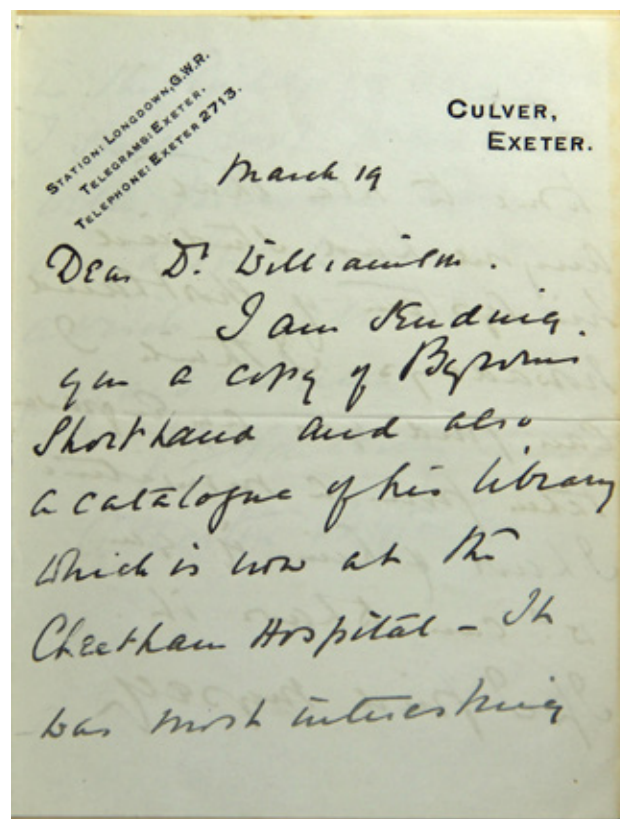 STATION: LONGDOWN, G.W.R.
TELEGRAMS: EXETER.
TELEPHONE: EXETER 2713.
CULVER,
EXETER.
March 19
Dear Dr. Williamson.
I am sending
you a copy of Byroms
Shorthand and also
a catalogue of his library
which is now at the
Cheetham Hospital – It
was most interesting